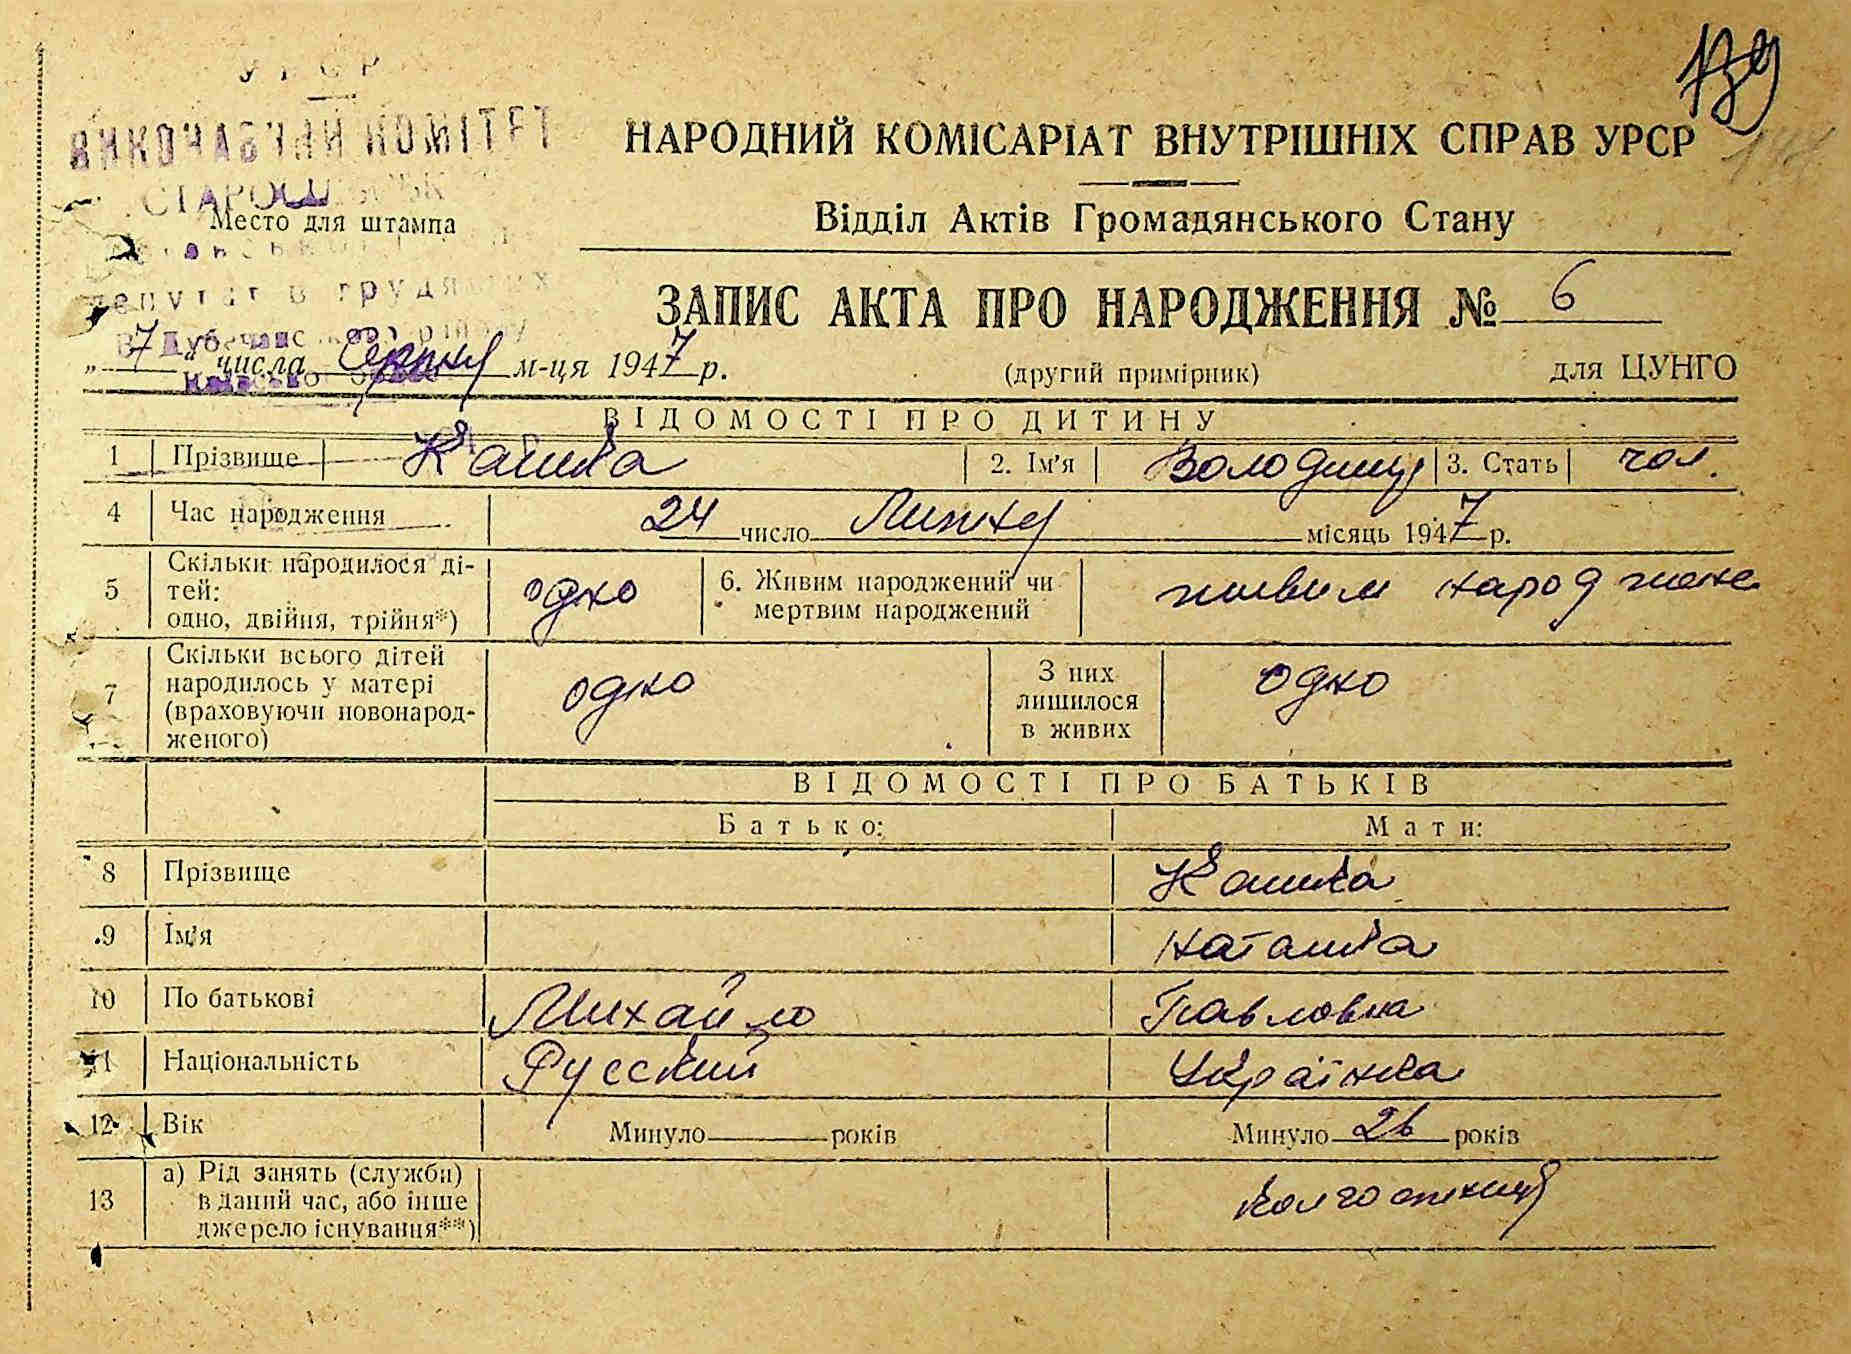 139
УРСР
ВИКОНАВЧИЙ КОМІТЕТ
Место для штампа
депутатів трудящих
НАРОДНИЙ КОМІСАРІАТ ВНУТРІШНІХ СПРАВ УРСР
Відділ Актів Громадянського Стану
ЗАПИС АКТА ПРО НАРОДЖЕННЯ № 6
„ 7 “ числа Серпня м-ця 1947 р. (другий примірник) для ЦУНГО
ВІДОМОСТІ ПРО ДИТИНУ
1 Прізвище Кашка 2. Ім'я Володимир 3. Стать чол.
4 Час народження 24 число Липня місяць 1947 р.
5 Скільки народилося ді-
тей:
одно, двійня, трійня*) одно 6. Живим народжений чи
мертвим народжений живим народжене
7 Скільки всього дітей
народилось у матері
(враховуючи новонарод-
женого) одно З них
лишилося
в живих одно
ВІДОМОСТІ ПРО БАТЬКІВ
Батько: Мати:
8 Прізвище Кашка
9 Ім'я Наташка
10 По батькові Михайло Павловна
11 Національність Русский Українка
12 Вік Минуло років Минуло 26 років
13 а) Рід занять (служби)
в даний час, або інше
джерело існування**) колгоспниця